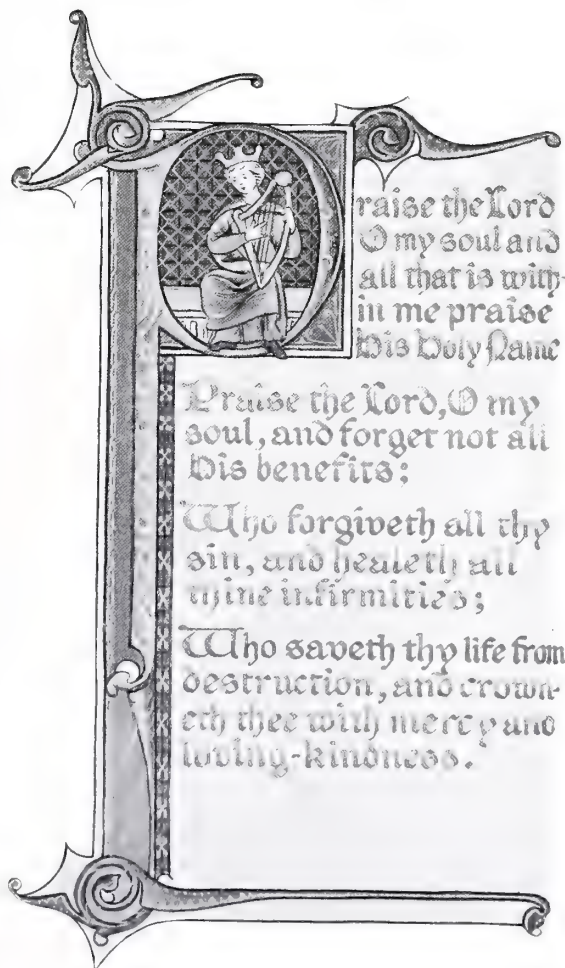 Praise the Lord
O my soul and
all that is with-
in me praise
His Holy Name
Praise the Lord, O my
soul, and forget not all
His benefits;
Who forgiveth all thy
sin, and healeth all
thine infirmities;
Who saveth thy life from
destruction, and crown-
eth thee with mercy and
loving-kindness.